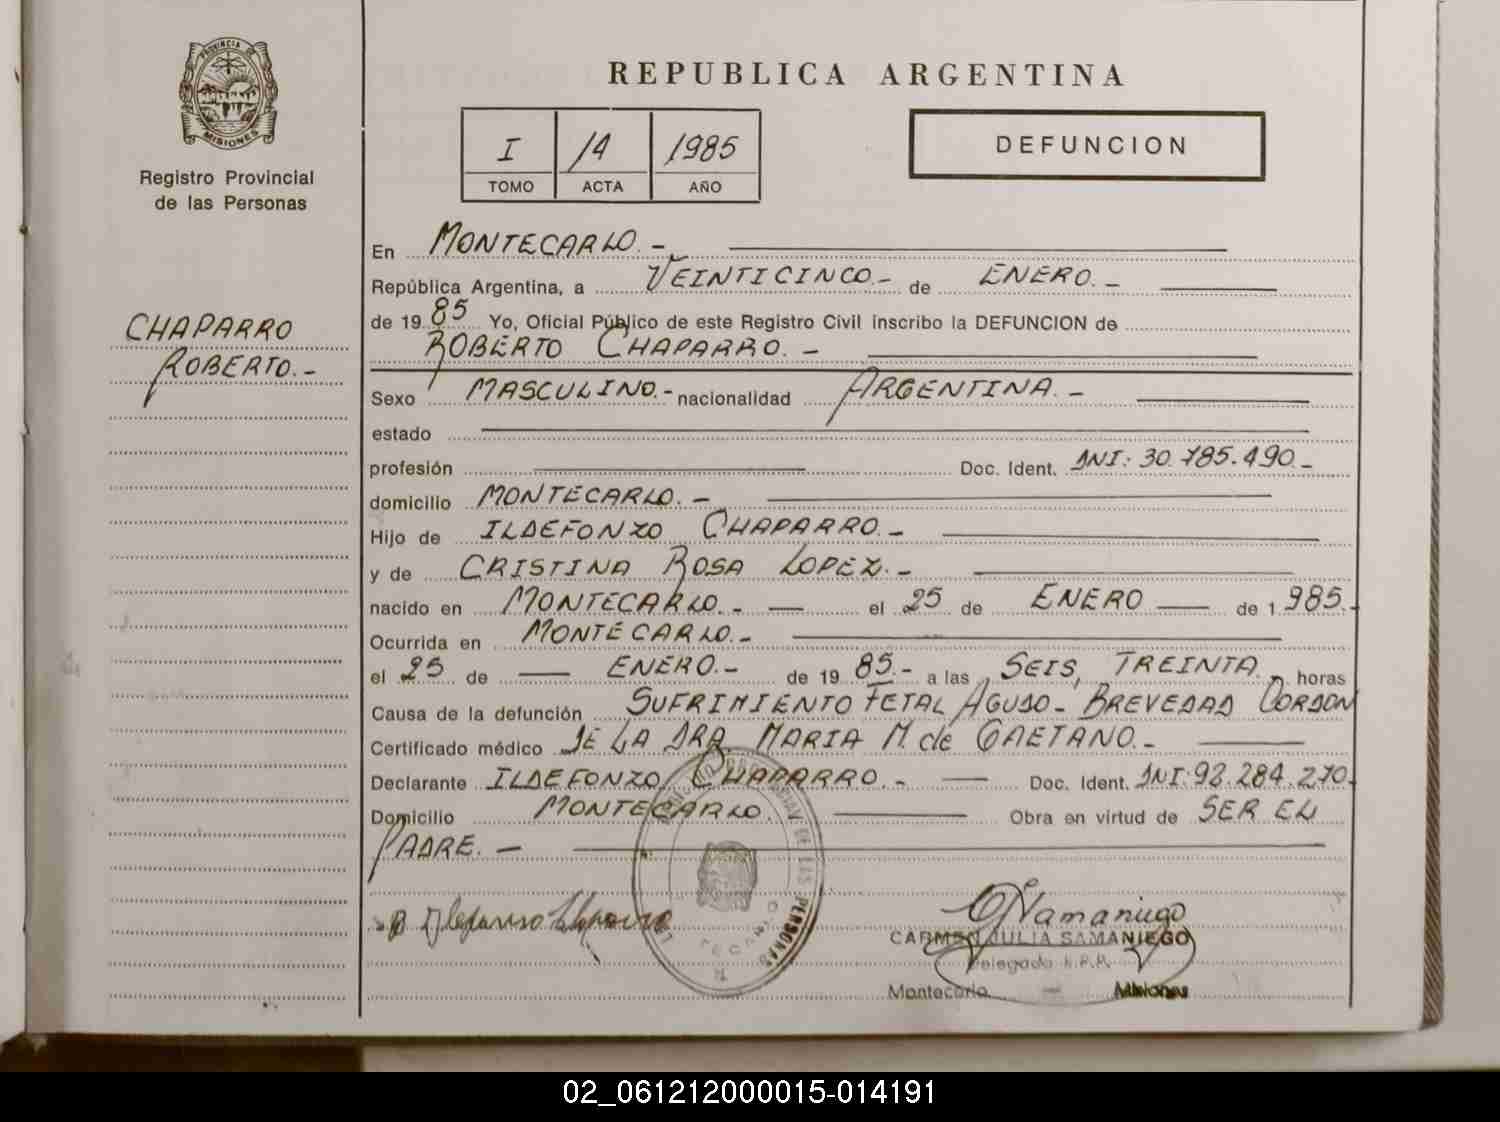 PROVINCIA DE
MISIONES
Registro Provincial
de las Personas
CHAPARRO
ROBERTO.-
REPUBLICA ARGENTINA
I 14 1985
TOMO ACTA AÑO
DEFUNCION
En MONTECARLO.-
República Argentina, a VEINTICINCO.- de ENERO.-
de 19 85 Yo, Oficial Público de este Registro Civil inscribo la DEFUNCION de
ROBERTO CHAPARRO.-
Sexo MASCULINO.- nacionalidad ARGENTINA.-
estado
profesión Doc. Ident. DNI: 30.785.490.-
domicilio MONTECARLO.-
Hijo de ILDEFONZO CHAPARRO.-
y de CRISTINA ROSA LOPEZ.-
nacido en MONTECARLO.- el 25 de ENERO de 1 985.-
Ocurrida en MONTECARLO.-
el 25 de ENERO.- de 19 85.- a las SEIS, TREINTA horas
Causa de la defunción SUFRIMIENTO FETAL AGUDO- BREVEDAD CORDON
Certificado médico DE LA DRA. MARIA M. de GAETANO.-
Declarante ILDEFONZO CHAPARRO.- Doc. Ident. DNI: 92.284.270
Domicilio MONTECARLO. Obra en virtud de SER EL
PADRE.-
DE LAS PERSONAS
Samaniego
CARMEN JULIA SAMANIEGO
Delegada R.P.P.
Montecarlo - Misiones
02_061212000015-014191